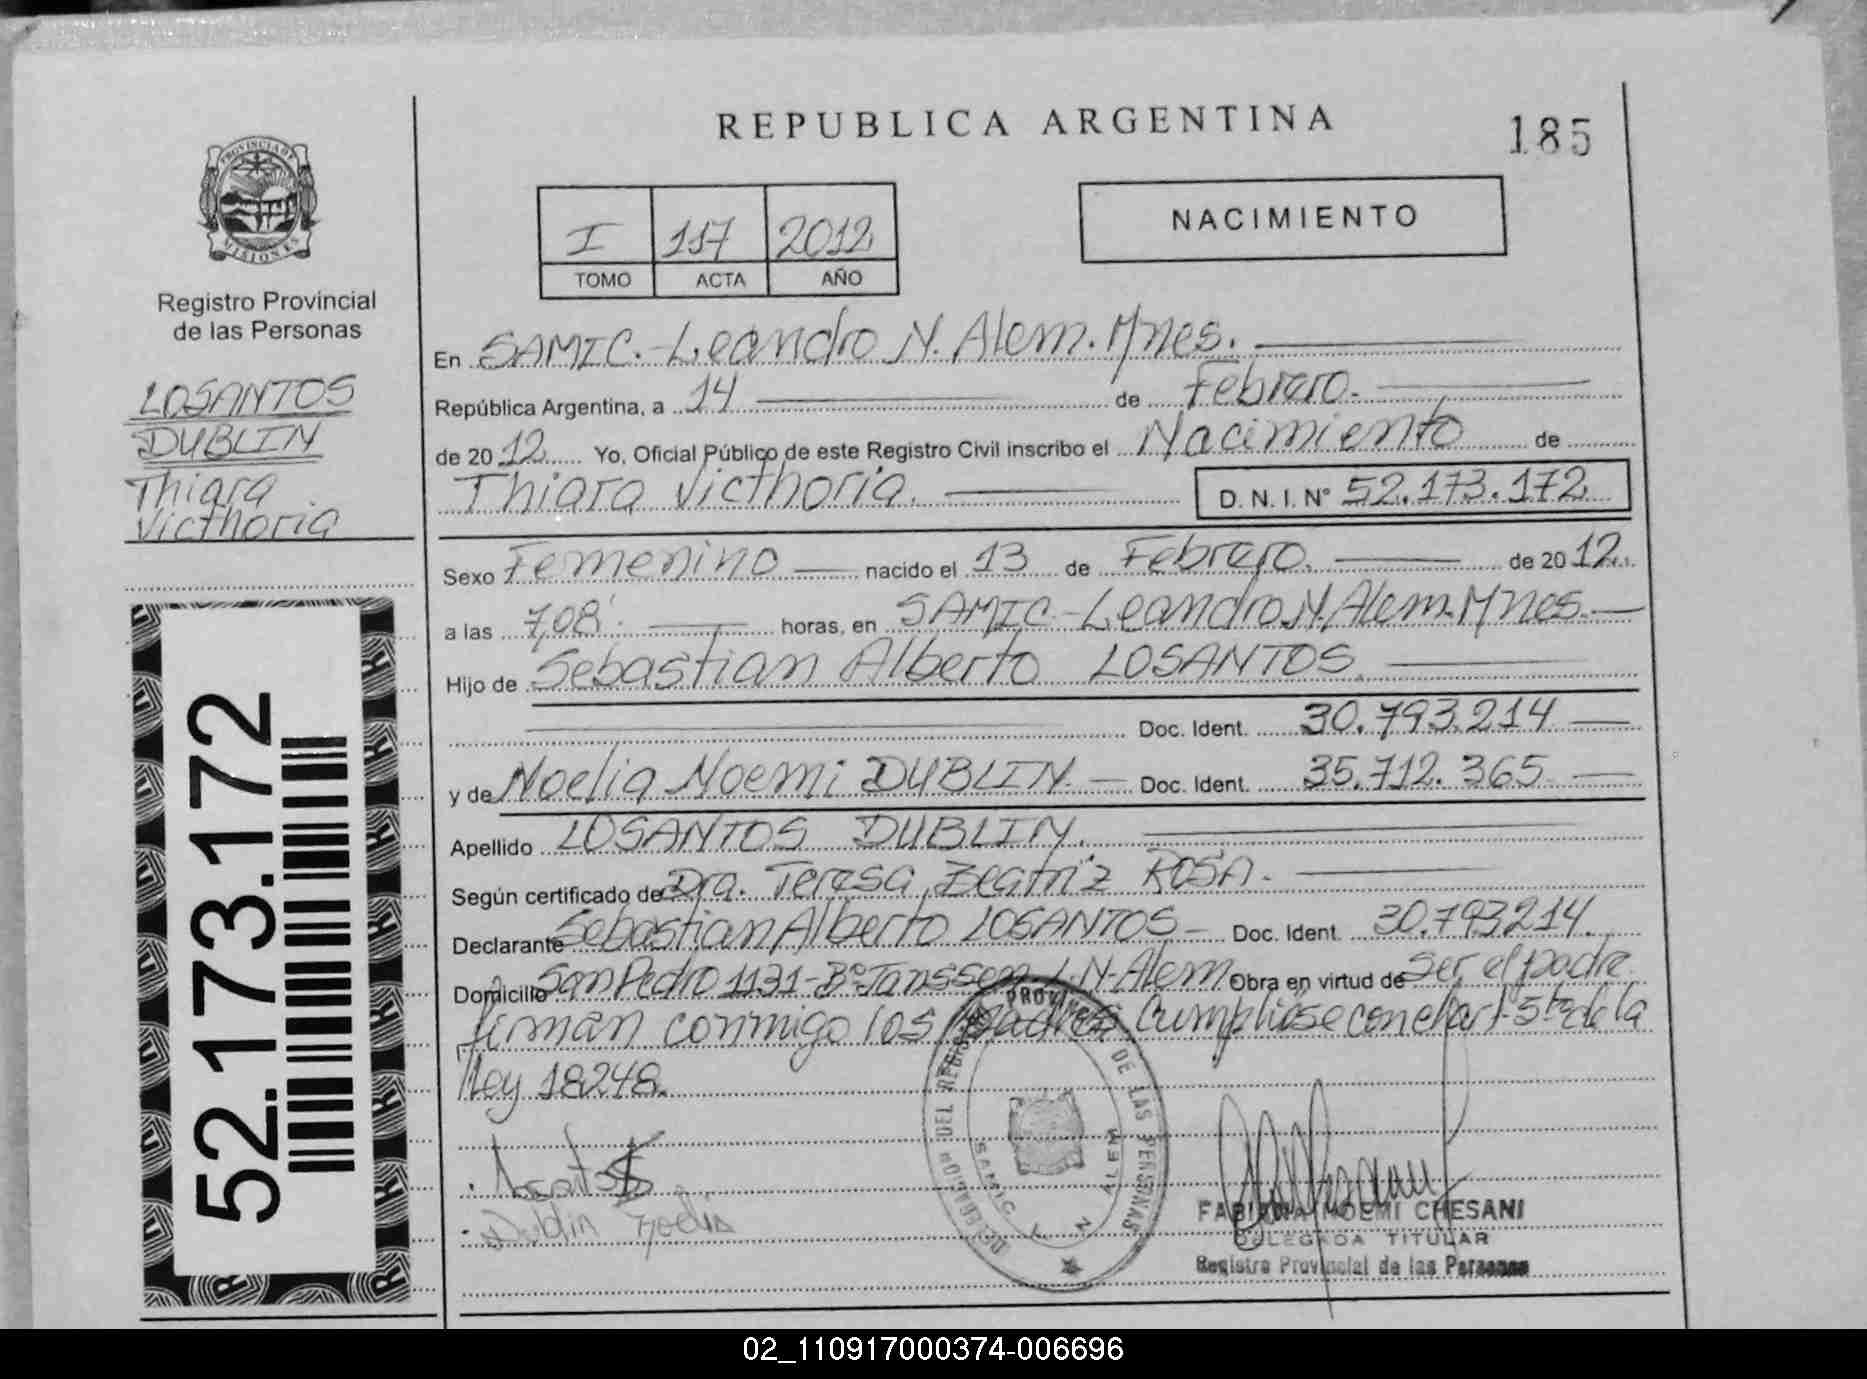 REPUBLICA ARGENTINA
185
PROVINCIA DE
MISIONES
Registro Provincial
de las Personas
LOSANTOS
DUBLIN
Thiara
Victhoria
I 117 2012
TOMO ACTA AÑO
NACIMIENTO
En SAMIC.-Leandro N. Alem. Mnes.
República Argentina, a 14 de Febrero.
de 2012 Yo, Oficial Público de este Registro Civil inscribo el Nacimiento de
Thiara Victhoria. D. N. I. N° 52.173.172
Sexo Femenino nacido el 13 de Febrero. de 2012.
a las 7,08' horas, en SAMIC-Leandro N. Alem. Mnes.
Hijo de Sebastian Alberto LOSANTOS
Doc. Ident. 30.793.214
y de Noelia Noemi DUBLIN. Doc. Ident. 35.712.365
Apellido LOSANTOS DUBLIN.
Según certificado de Dra. Teresa Beatriz ROSA.
Declarante Sebastian Alberto LOSANTOS Doc. Ident. 30.793214.
Domicilio San Pedro 1131-B° Janssen L.N-Alem Obra en virtud de ser el padre
firman conmigo los padres Cumpliose con el art-5to de la
Ley 18248.
DELEGACION DEL REGISTRO PROVINCIAL DE LAS PERSONAS
SAMIC L N ALEM
Dublin Noelia
FABIANA NOEMI CHESANI
DELEGADA TITULAR
Registro Provincial de las Personas
52.173.172
02_110917000374-006696